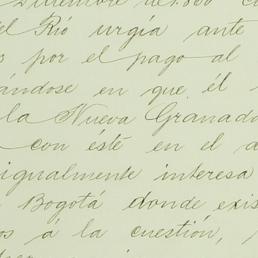 Diciembre de 1800
del Río urgía ante
por el pago al
ándose en que él
la Nueva Granada
con éste en el d
igualmente interesa
Bogotá donde exis
os á la cuestión,